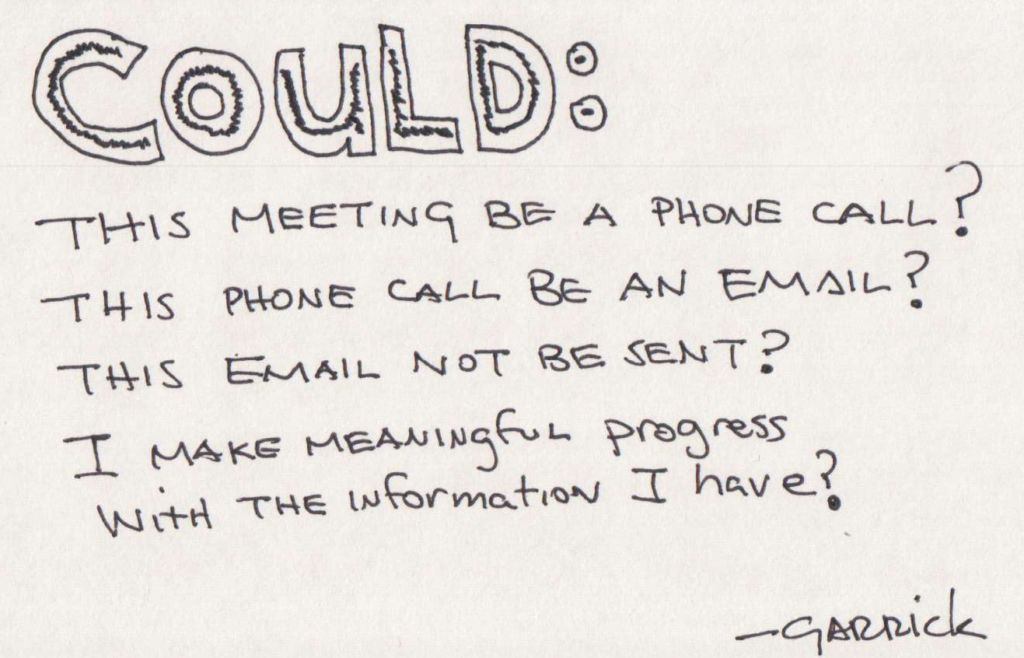 COULD:
THIS MEETING BE A PHONE CALL?
THIS PHONE CALL BE AN EMAIL?
THIS EMAIL NOT BE SENT?
I MAKE MEANINGfUL progress
WITH THE INformatION I have?
—GARRick